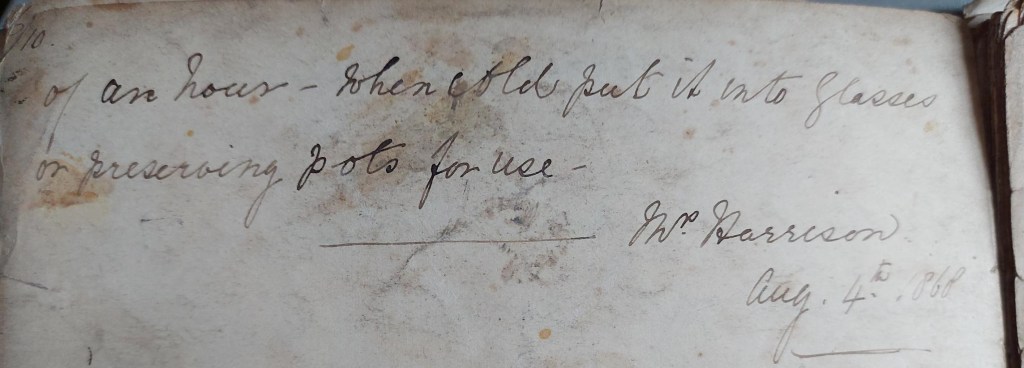 of an hour - When cold put it into glasses
or preserving pots for use -
Mrs Harrison
Aug. 4th. 1868